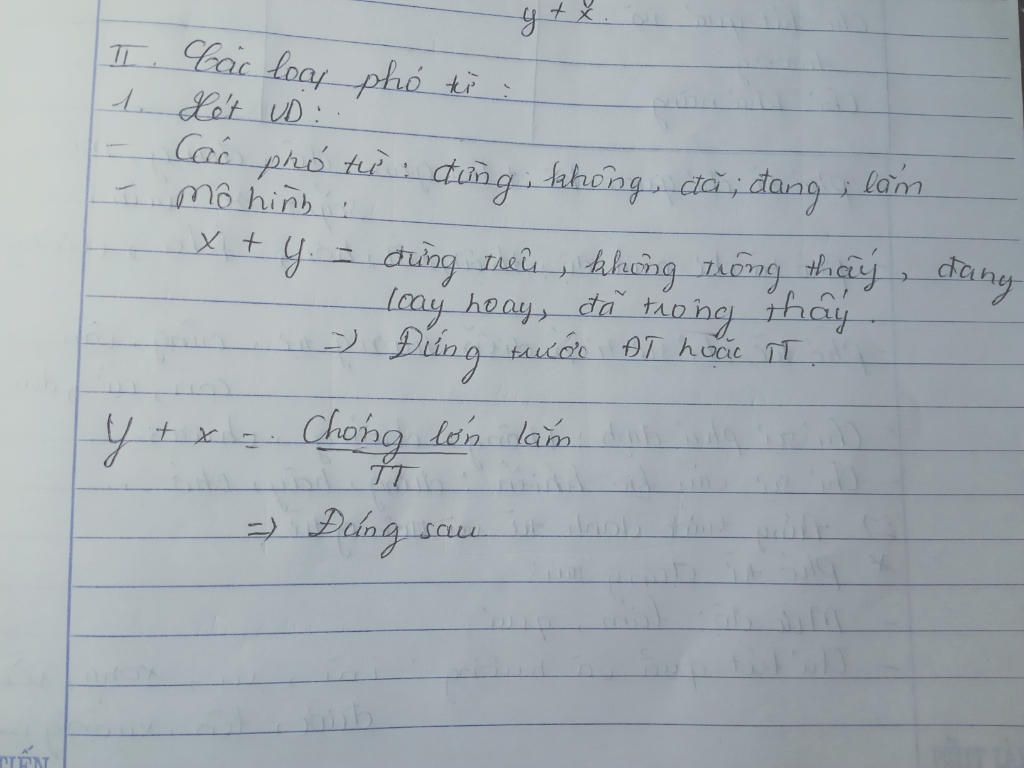 y + x.
II. Các loại phó từ :
1. Xét VD :
- Các phó từ : đừng, không, đã, đang, lắm
- Mô hình :
x + y. = đừng trêu, không trông thấy, đang
loay hoay, đã trông thấy.
=> Đứng trước ĐT hoặc TT.
y + x = Chóng lớn lắm
TT
=> Đứng sau
TIẾN